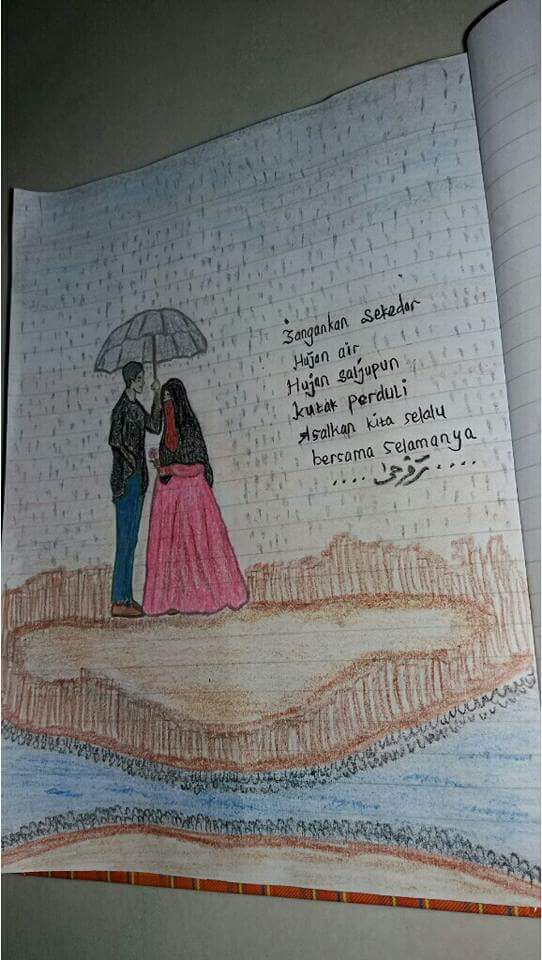 Jangankan sekedar
Hujan air
Hujan saljupun
kutak perduli
Asalkan kita selalu
bersama selamanya